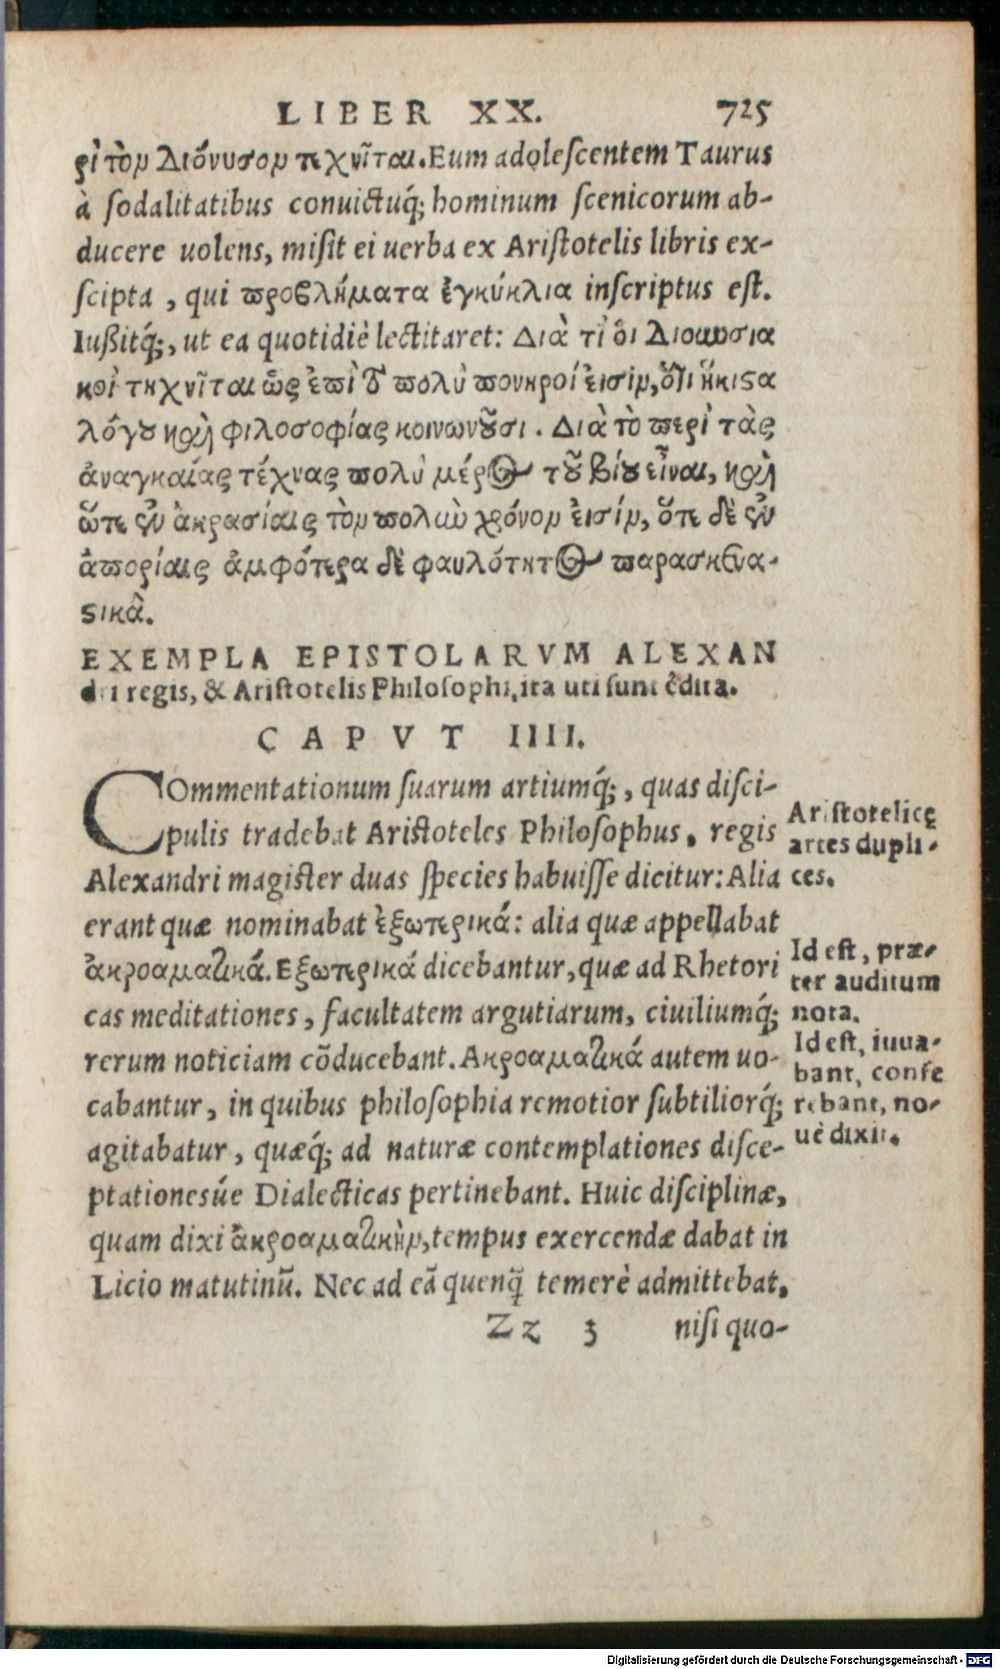 LIBER XX. 725
ρὶ τὸν Διόνυσον τεχνῖται. Eum adolescentem Taurus
à sodalitatibus convictuq́; hominum scenicorum ab-
ducere uolens, misit ei uerba ex Aristotelis libris ex-
scipta, qui προβλήματα ἐγκύκλια inscriptus est.
Iußitq́;, ut ea quotidiè lectitaret: Διὰ τί ὁι Διονυσια
κοὶ τηχνῖται ὣς ἐπὶ τὸ πολὺ πονηροί ἐισίν, ὅτι ἥκιϛα
λόγου καὶ φιλοσοφίας κοινωνοῦσι. Διὰ τὸ περὶ τὰς
ἀναγκαίας τέχνας πολὺ μέρος τοῦ βίου εἶναι, καὶ
ὥτε ἐν ἀκρασίαις τὸν πολὺν χρόνον ἐισίν, ὅτε δὲ ἐν
ἀπορίαις ἀμφότερα δὲ φαυλότητος παρασκευα-
ϛικὰ.
EXEMPLA EPISTOLARVM ALEXAN
dri regis, & Aristotelis Philosophi, ita uti sunt ędita.
CAPVT IIII.
COmmentationum suarum artiumq́;, quas disci-
pulis tradebat Aristoteles Philosophus, regis
Alexandri magister duas species habuisse dicitur: Alia
erant quæ nominabat ἐξωτερικά: alia quæ appellabat
ἀκροαματικά. Εξωτερικά dicebantur, quæ ad Rhetori
cas meditationes, facultatem argutiarum, ciuiliumq́;
rerum noticiam cōducebant. Ακροαματικά autem uo-
cabantur, in quibus philosophia remotior subtiliorq́;
agitabatur, quæq́; ad naturæ contemplationes disce-
ptationesúe Dialecticas pertinebant. Huic disciplinæ,
quam dixi ἀκροαματικὴν, tempus exercendæ dabat in
Licio matutinũ. Nec ad eã quenq̃ temerè admittebat,
Zz 3 nisi quo-
Aristotelicę
artes dupli-
ces.
Id est, præ-
ter auditum
nota.
Id est, iuua-
bant, confe
rebant, no-
uè dixit.
Digitalisierung gefördert durch die Deutsche Forschungsgemeinschaft - DFG